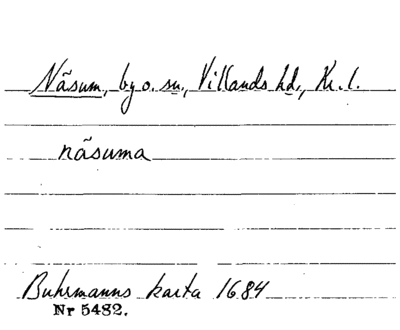 Näsum, by o. sn., Villands hd., Kr. l.
näsuma
Buhrmanns karta 1684
Nr 5482.